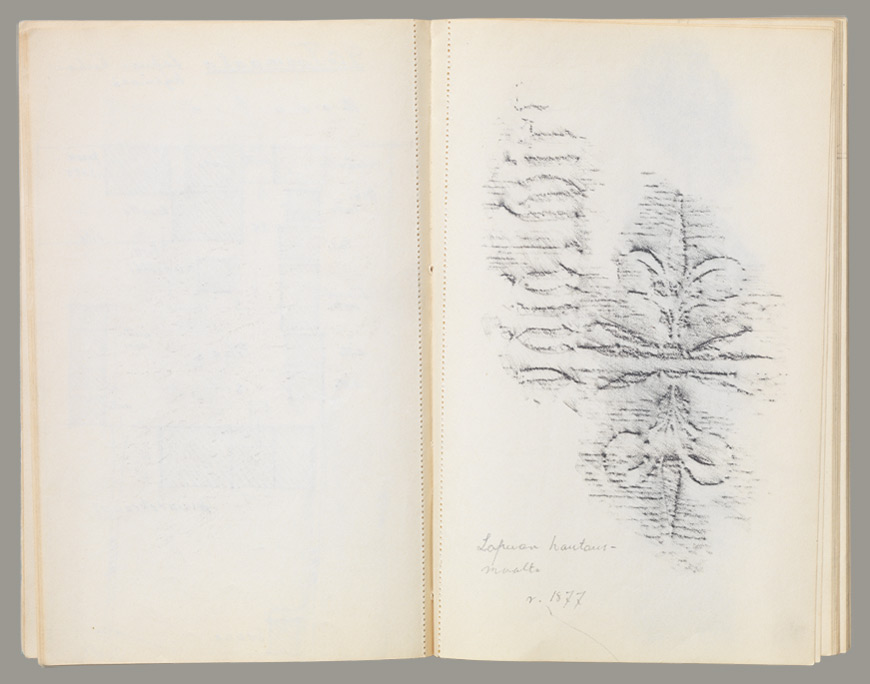 Lapuan hautaus-
maalta
v. 1877